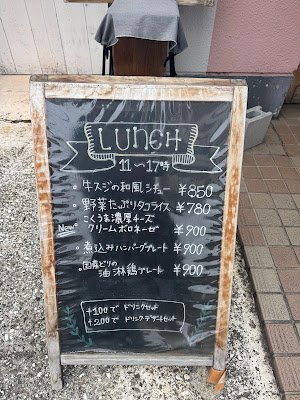 LUNCH
11〜17時
・牛スジの和風シチュー ¥850
・野菜たっぷりタコライス ¥780
・こくうま濃厚チーズ
New クリームボロネーゼ ¥900
・煮込みハンバーグプレート ¥900
・国産どりの
油淋鶏プレート ¥900
+¥100で ドリンクセット
+¥200で ドリンク・デザートセット